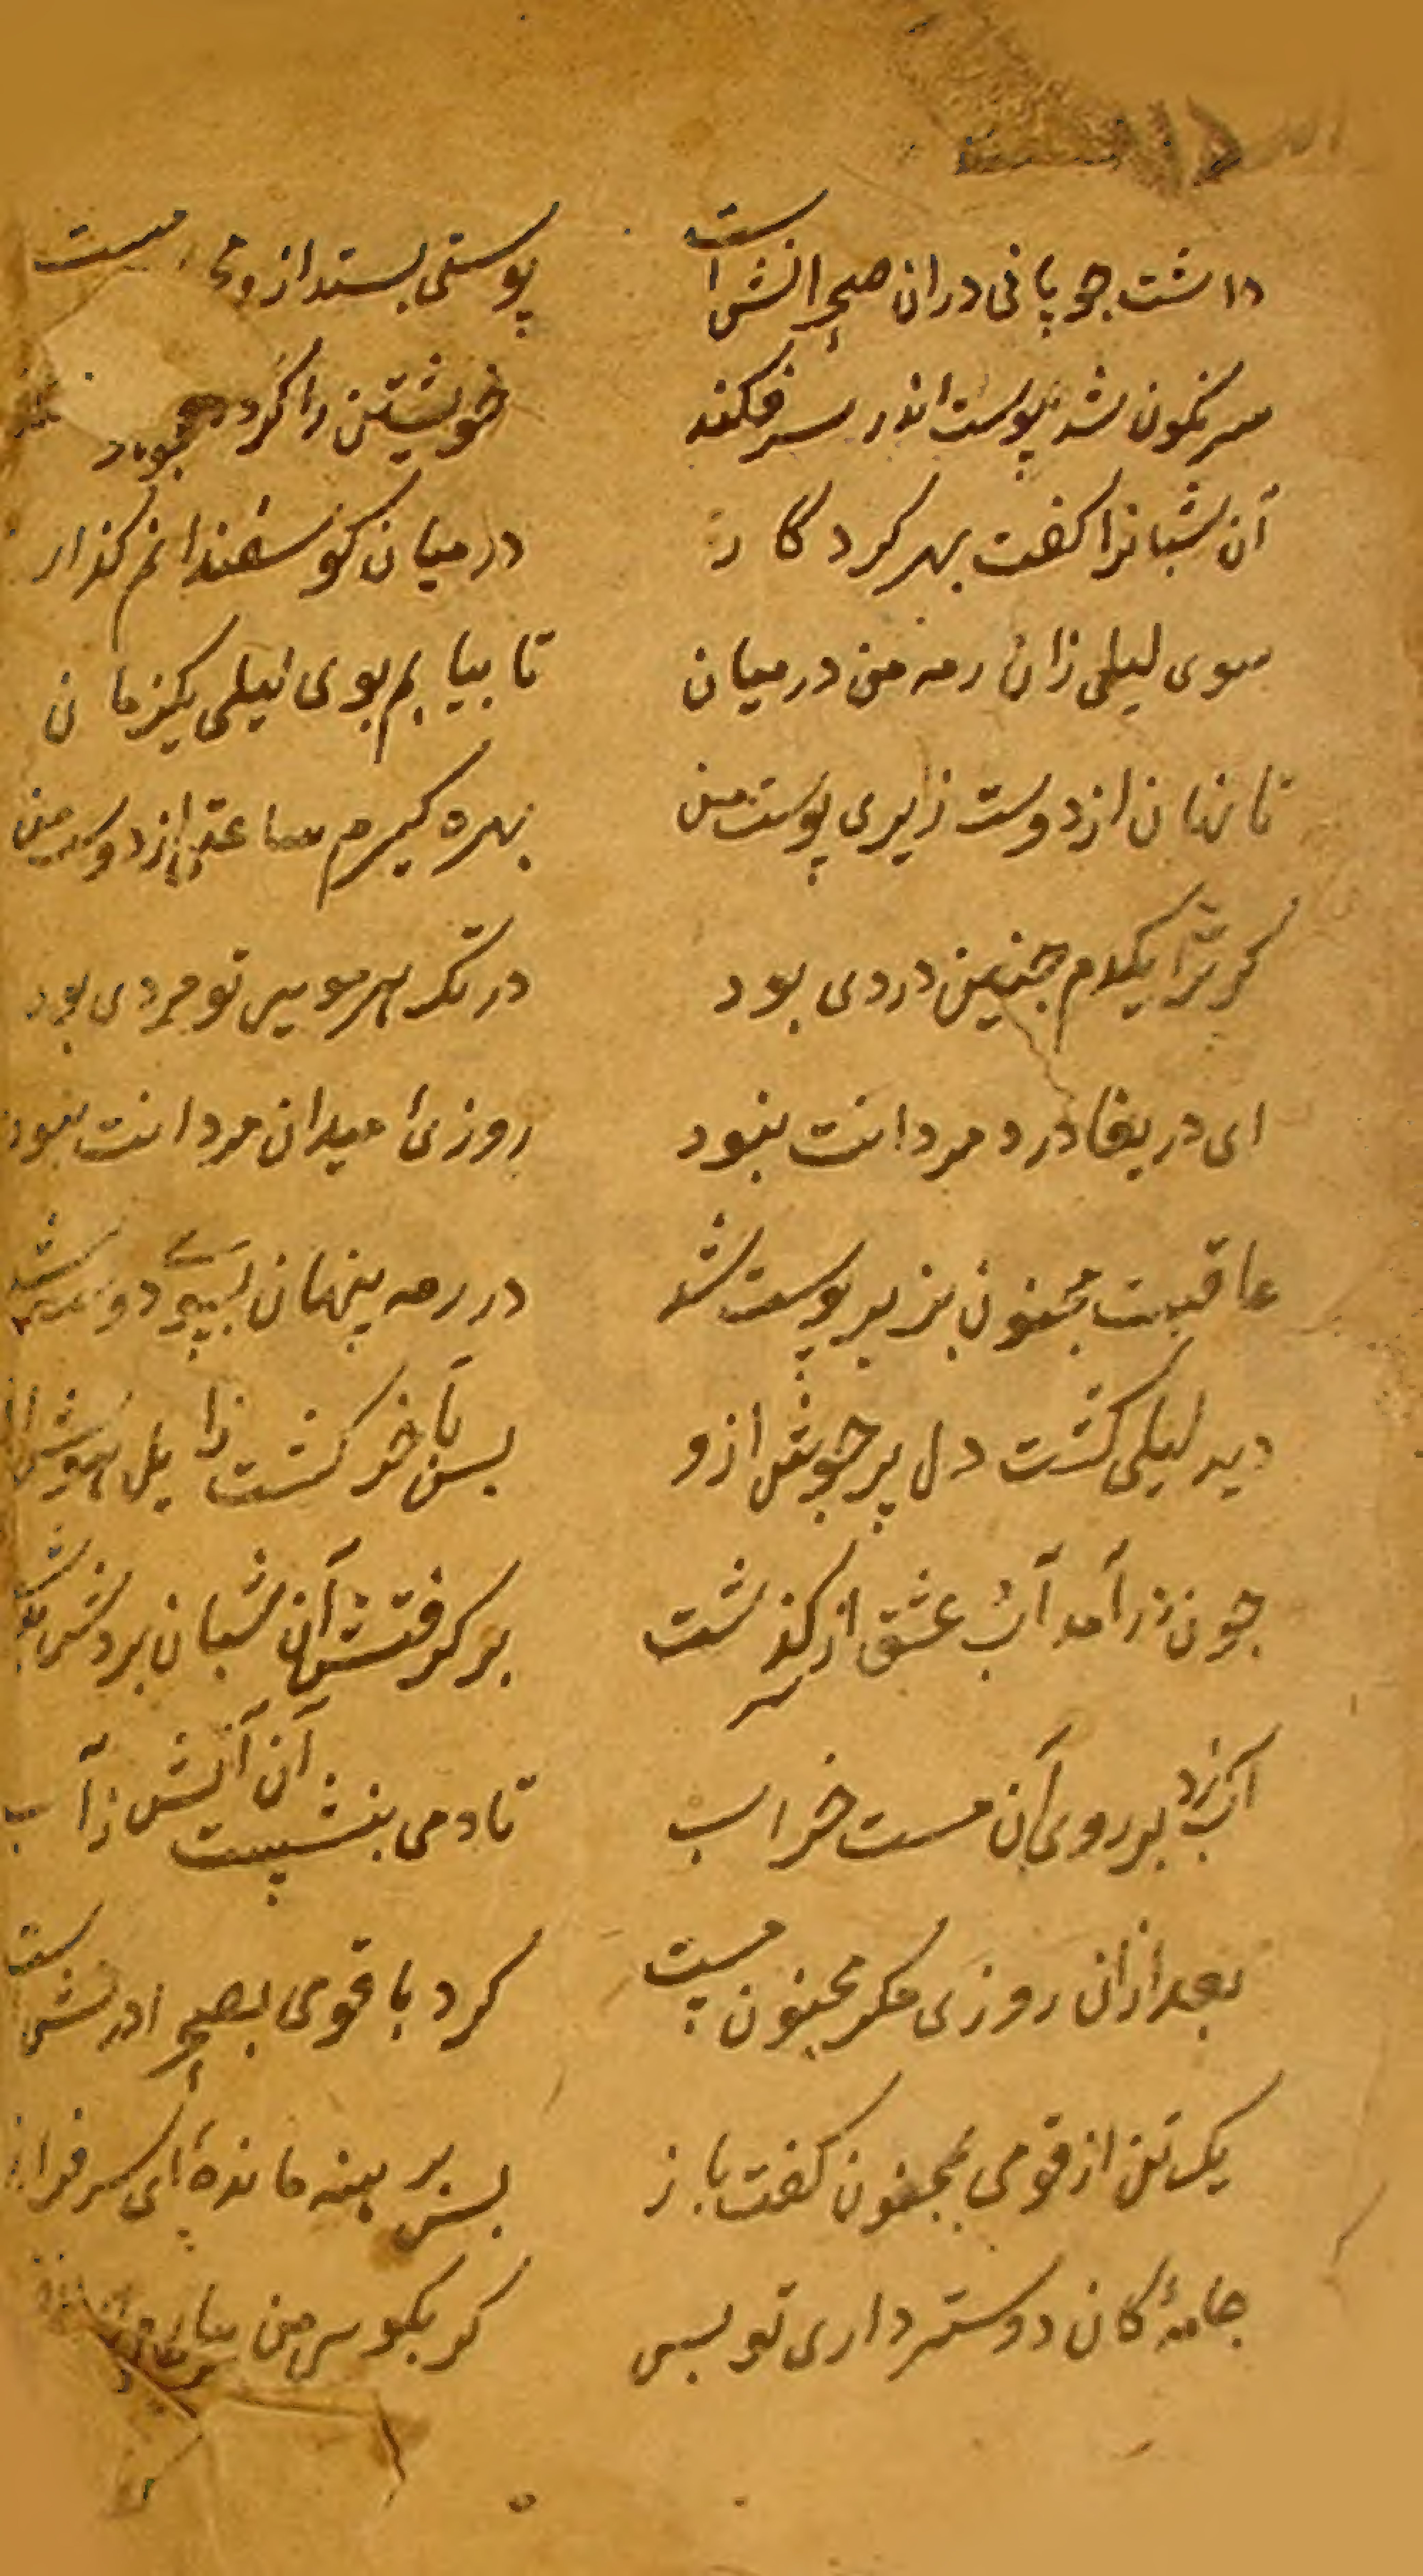 داشت چوپانی دران صحرا نشست پوستی بستد ازو مست
سرنگون شد پوست اندر سر فکند خویشتن را کرد
آن شبانرا کفت بهر کردکار در میان کوسفندانم کذار
سوی لیلی زان رمه من در میان تا بیابم بوی لیلی یکزمان
تا نهان از دوست زیری پوست من بهره کیرم ساعتی از دوست من
کر ترا یکدم چنین دردی بود در تک هر موسر تو مردی بود
ای دریغا درد مردانت نبود روزئ میدان مردانت نبود
عاقبت مجنون بزیر پوست شد در رمه پنهان بپی دوست شد
دید لیلی کشت دل پر جوش ازو پس بآخر کشت زایل هوش ازو
جون درآمد آب عشق از سر کذشت برکرفتش آن شبان بردش
آب زد بر روی آن مست خراب تا دمی بنشست آن آتش ز آب
بعد ازان روزی مکر مجنون مست کرد با قومی بصحرا در نشست
یک تن از قومی بمجنون کفت باز بس برهنه مانده‌ٔ ای سرفراز
جامهٔ کان دوستر داری تو بس کر بکوس من